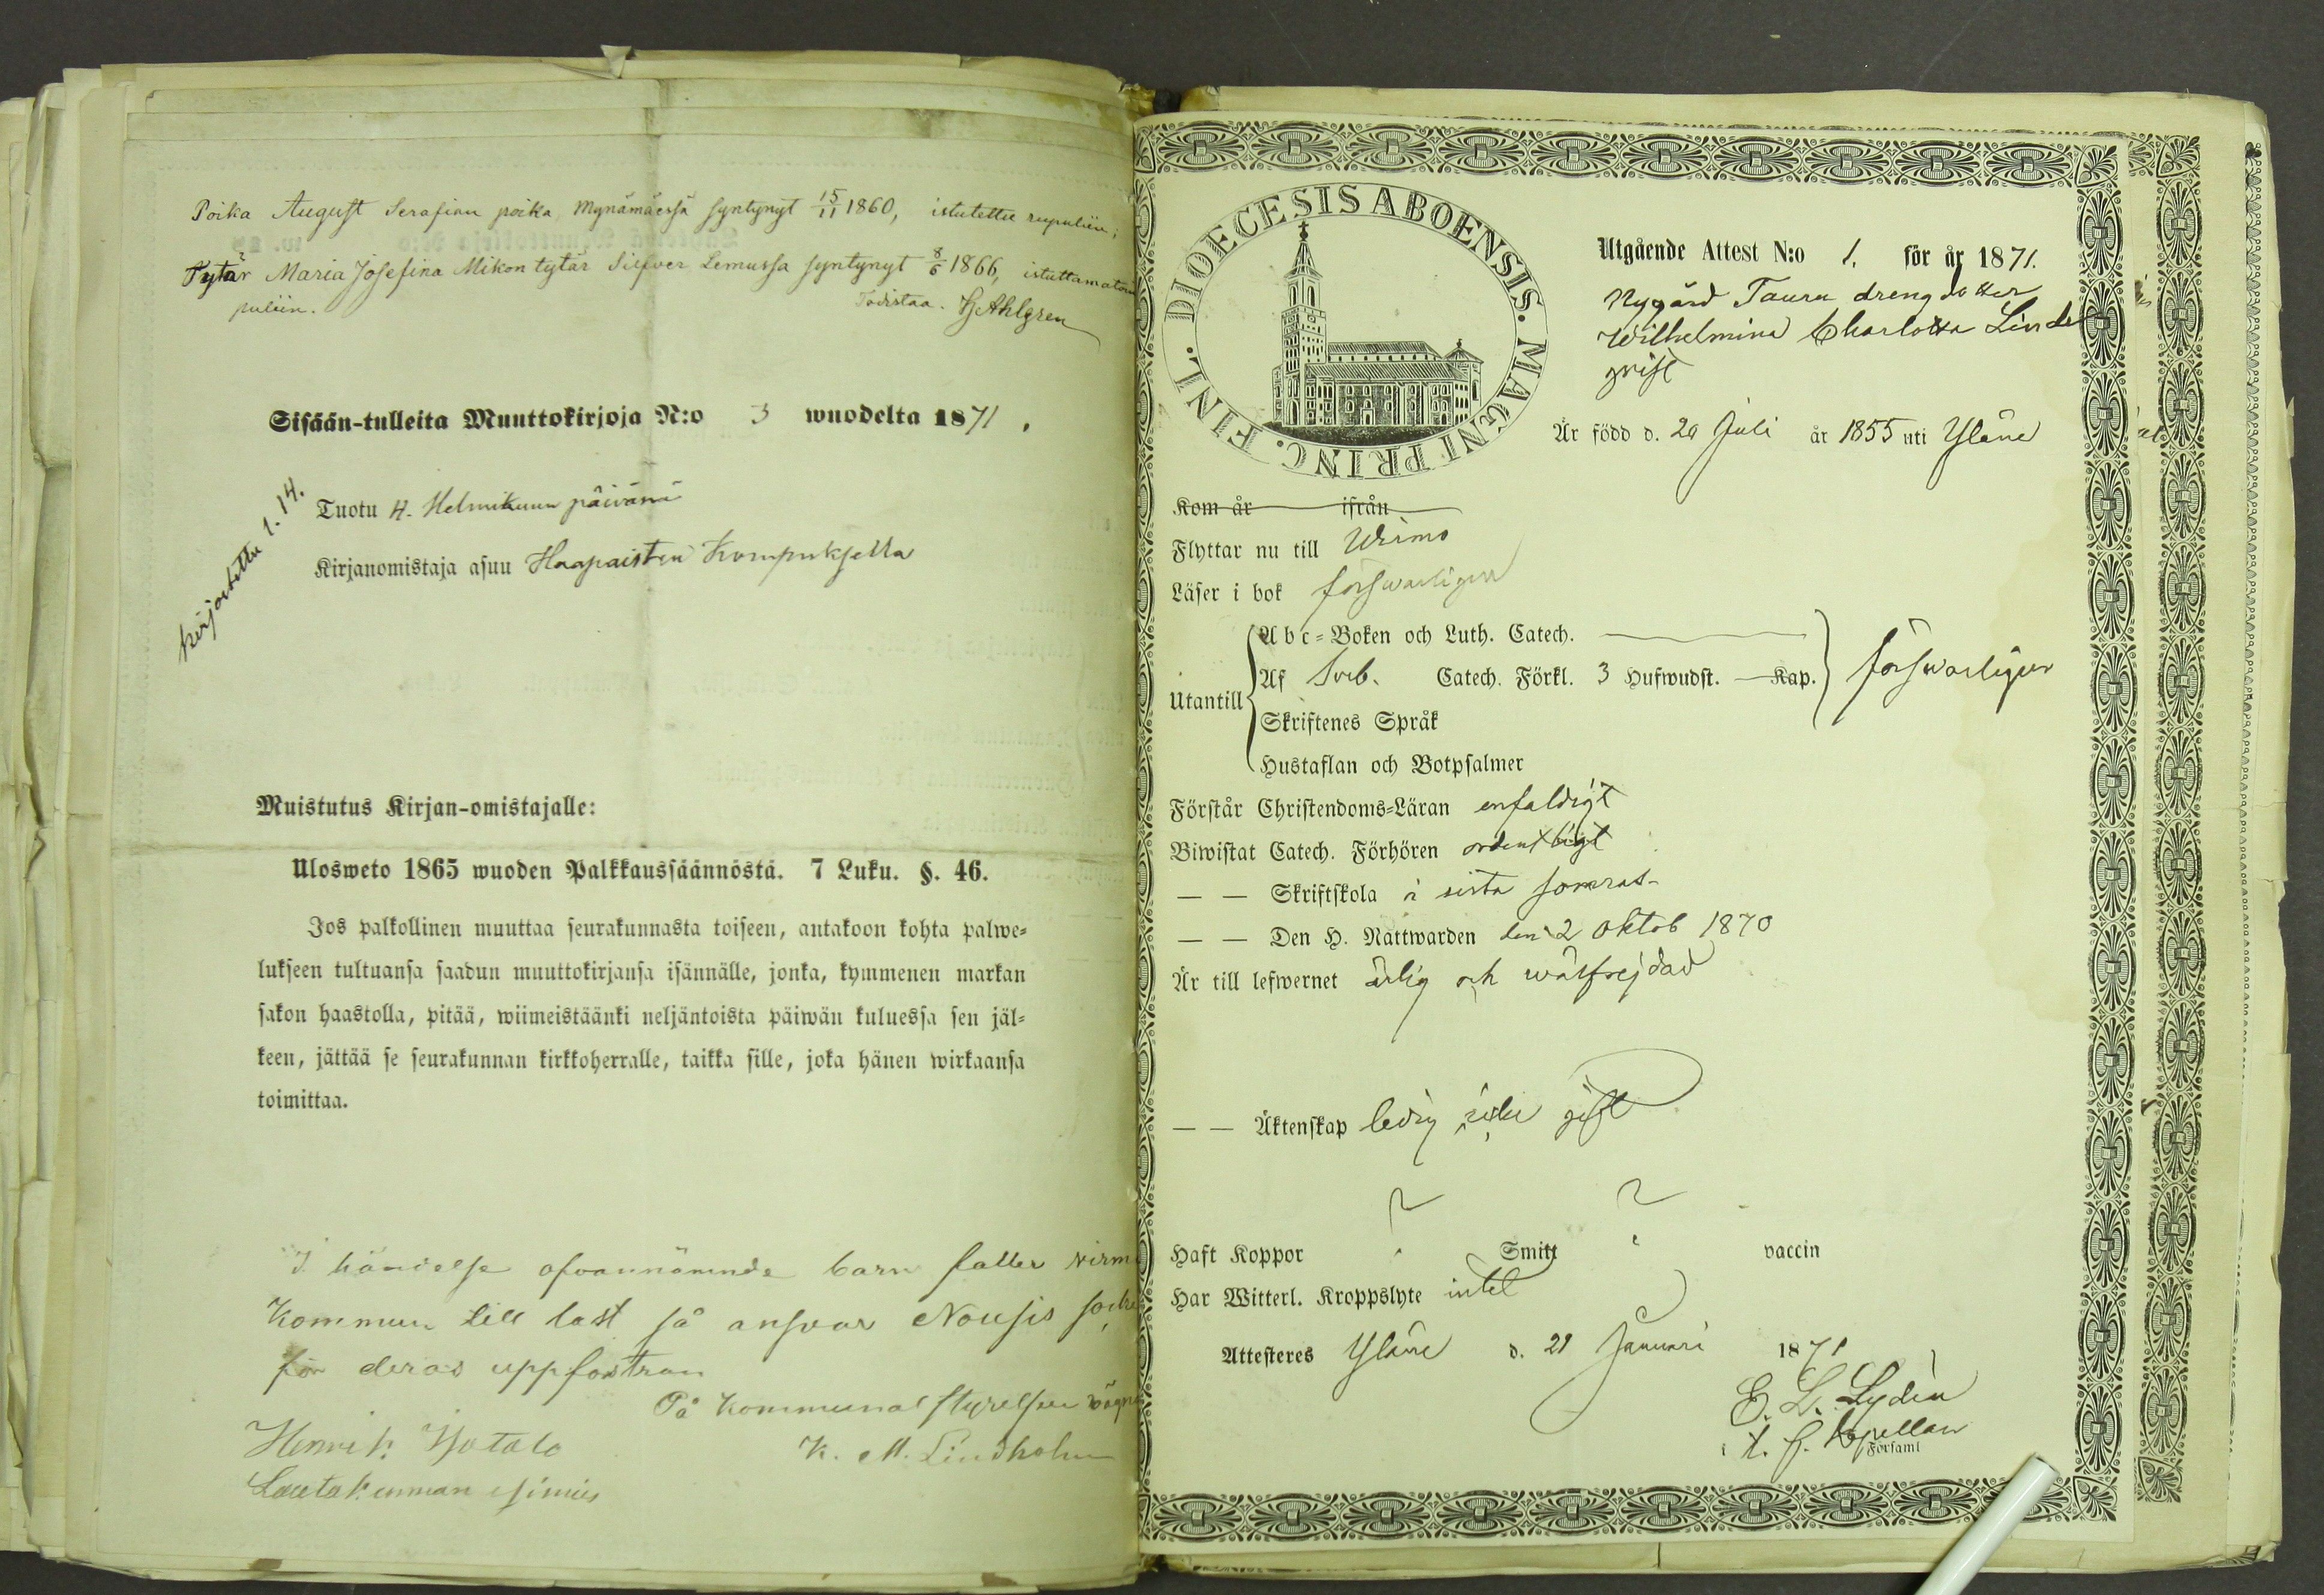 Poika August Serafian poika, Mynämäessä syntynyt 15/11 1860, istutettu rupuliin;
Tytär Maria Josefina Mikon tytär Silfver Lemussa syntynyt 8/6 1866, istuttamaton
puliin.
Todistaa. Hj Ahlgren
Sisään-tulleita Muuttokirjoja N:o 3 wuodelta 1871.
kirjoitettu 1. 14.
Tuotu 4. Helmikuun päivänä
Kirjanomistaja asuu Haapaisten Kompuksella
Muistutus Kirjan-omistajalle:
Ulosweto 1865 wuoden Palkkaussäännöstä. 7 Luku. §. 46.
Jos palkollinen muuttaa seurakunnasta toiseen, antakoon kohta palwe=
lukseen tultuansa saadun muuttokirjansa isännälle, jonka, kymmenen markan
sakon haastolla, pitää, wiimeistäänki neljäntoista päiwän kuluessa sen jäl=
keen, jättää se seurakunnan kirkkoherralle, taikka sille, joka hänen wirkaansa
toimittaa.
I händelse ofvannämnde barn faller Virmo
Kommun till last så ansvar Nousis socken
för deras uppfostran
På Kommunal styrelsen vägnar
Henrik Isotalo K. M. Lindholm
Lautakunnan esimies
DIOECESIS ABOENSIS. MAGNI PRINC. FINL.
Utgående Attest N:o 1. för år 1871.
Nygård Taura drengdotter
Wilhelmina Charlotta Lind
qvist
Är född d. 20 Juli år 1855 uti Yläne
Kom år ifrån
Flyttar nu till Wirmo
Läser i bok förswarligen
Utantill
Abc=Boken och Luth. Catech.
Af Sveb. Catech. Förkl. 3 Hufwudst. Kap. förswarligen
Skriftenes Språk
Hustaflan och Botpsalmer
Förstår Christendoms=Läran enfaldigt
Biwistat Catech. Förhören ordentligt
— — Skriftskola i sista somras
— — Den H. Nattwarden den 2 Oktob 1870
Är till lefwernet ärlig och wälfrejdad
— — Äktenskap ledig icke gift
Haft Koppor ? Smitt ? vaccin
Har Witterl. Kroppslyte intet
Attesteres Yläne d. 21 Januari 1871
E. L. Lydén
i t. f. Kapellan
Församl